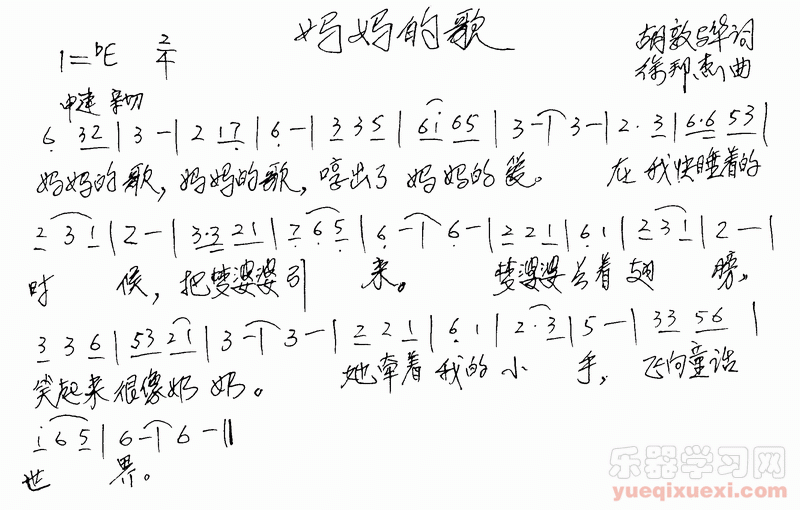 妈妈的歌
1=bE 2/4
胡敦骅词
徐邦杰曲
中速 亲切
6 32 | 3 - | 2 17 | 6 - | 3 3 5 | 6i 65 | 3 - | 3 - | 2. 3 | 6.6 53 |
妈妈的歌,妈妈的歌,哼出了妈妈的爱。 在我快睡着的
2 3 1 | 2 - | 3.3 21 | 7 6 5 | 6 - | 6 - | 2 2 1 | 6 1 | 2 3 1 | 2 - |
时 候,把梦婆婆引 来。 梦婆婆 着翅 膀,
3 3 6 | 53 21 | 3 - | 3 - | 2 2 1 | 6 1 | 2. 3 | 5 - | 33 56 |
笑起来很像奶奶。 她牵着我的小 手,飞向童话
i 6 5 | 6 - | 6 - ||
世 界。
乐器学习网
yueqixuexi.com